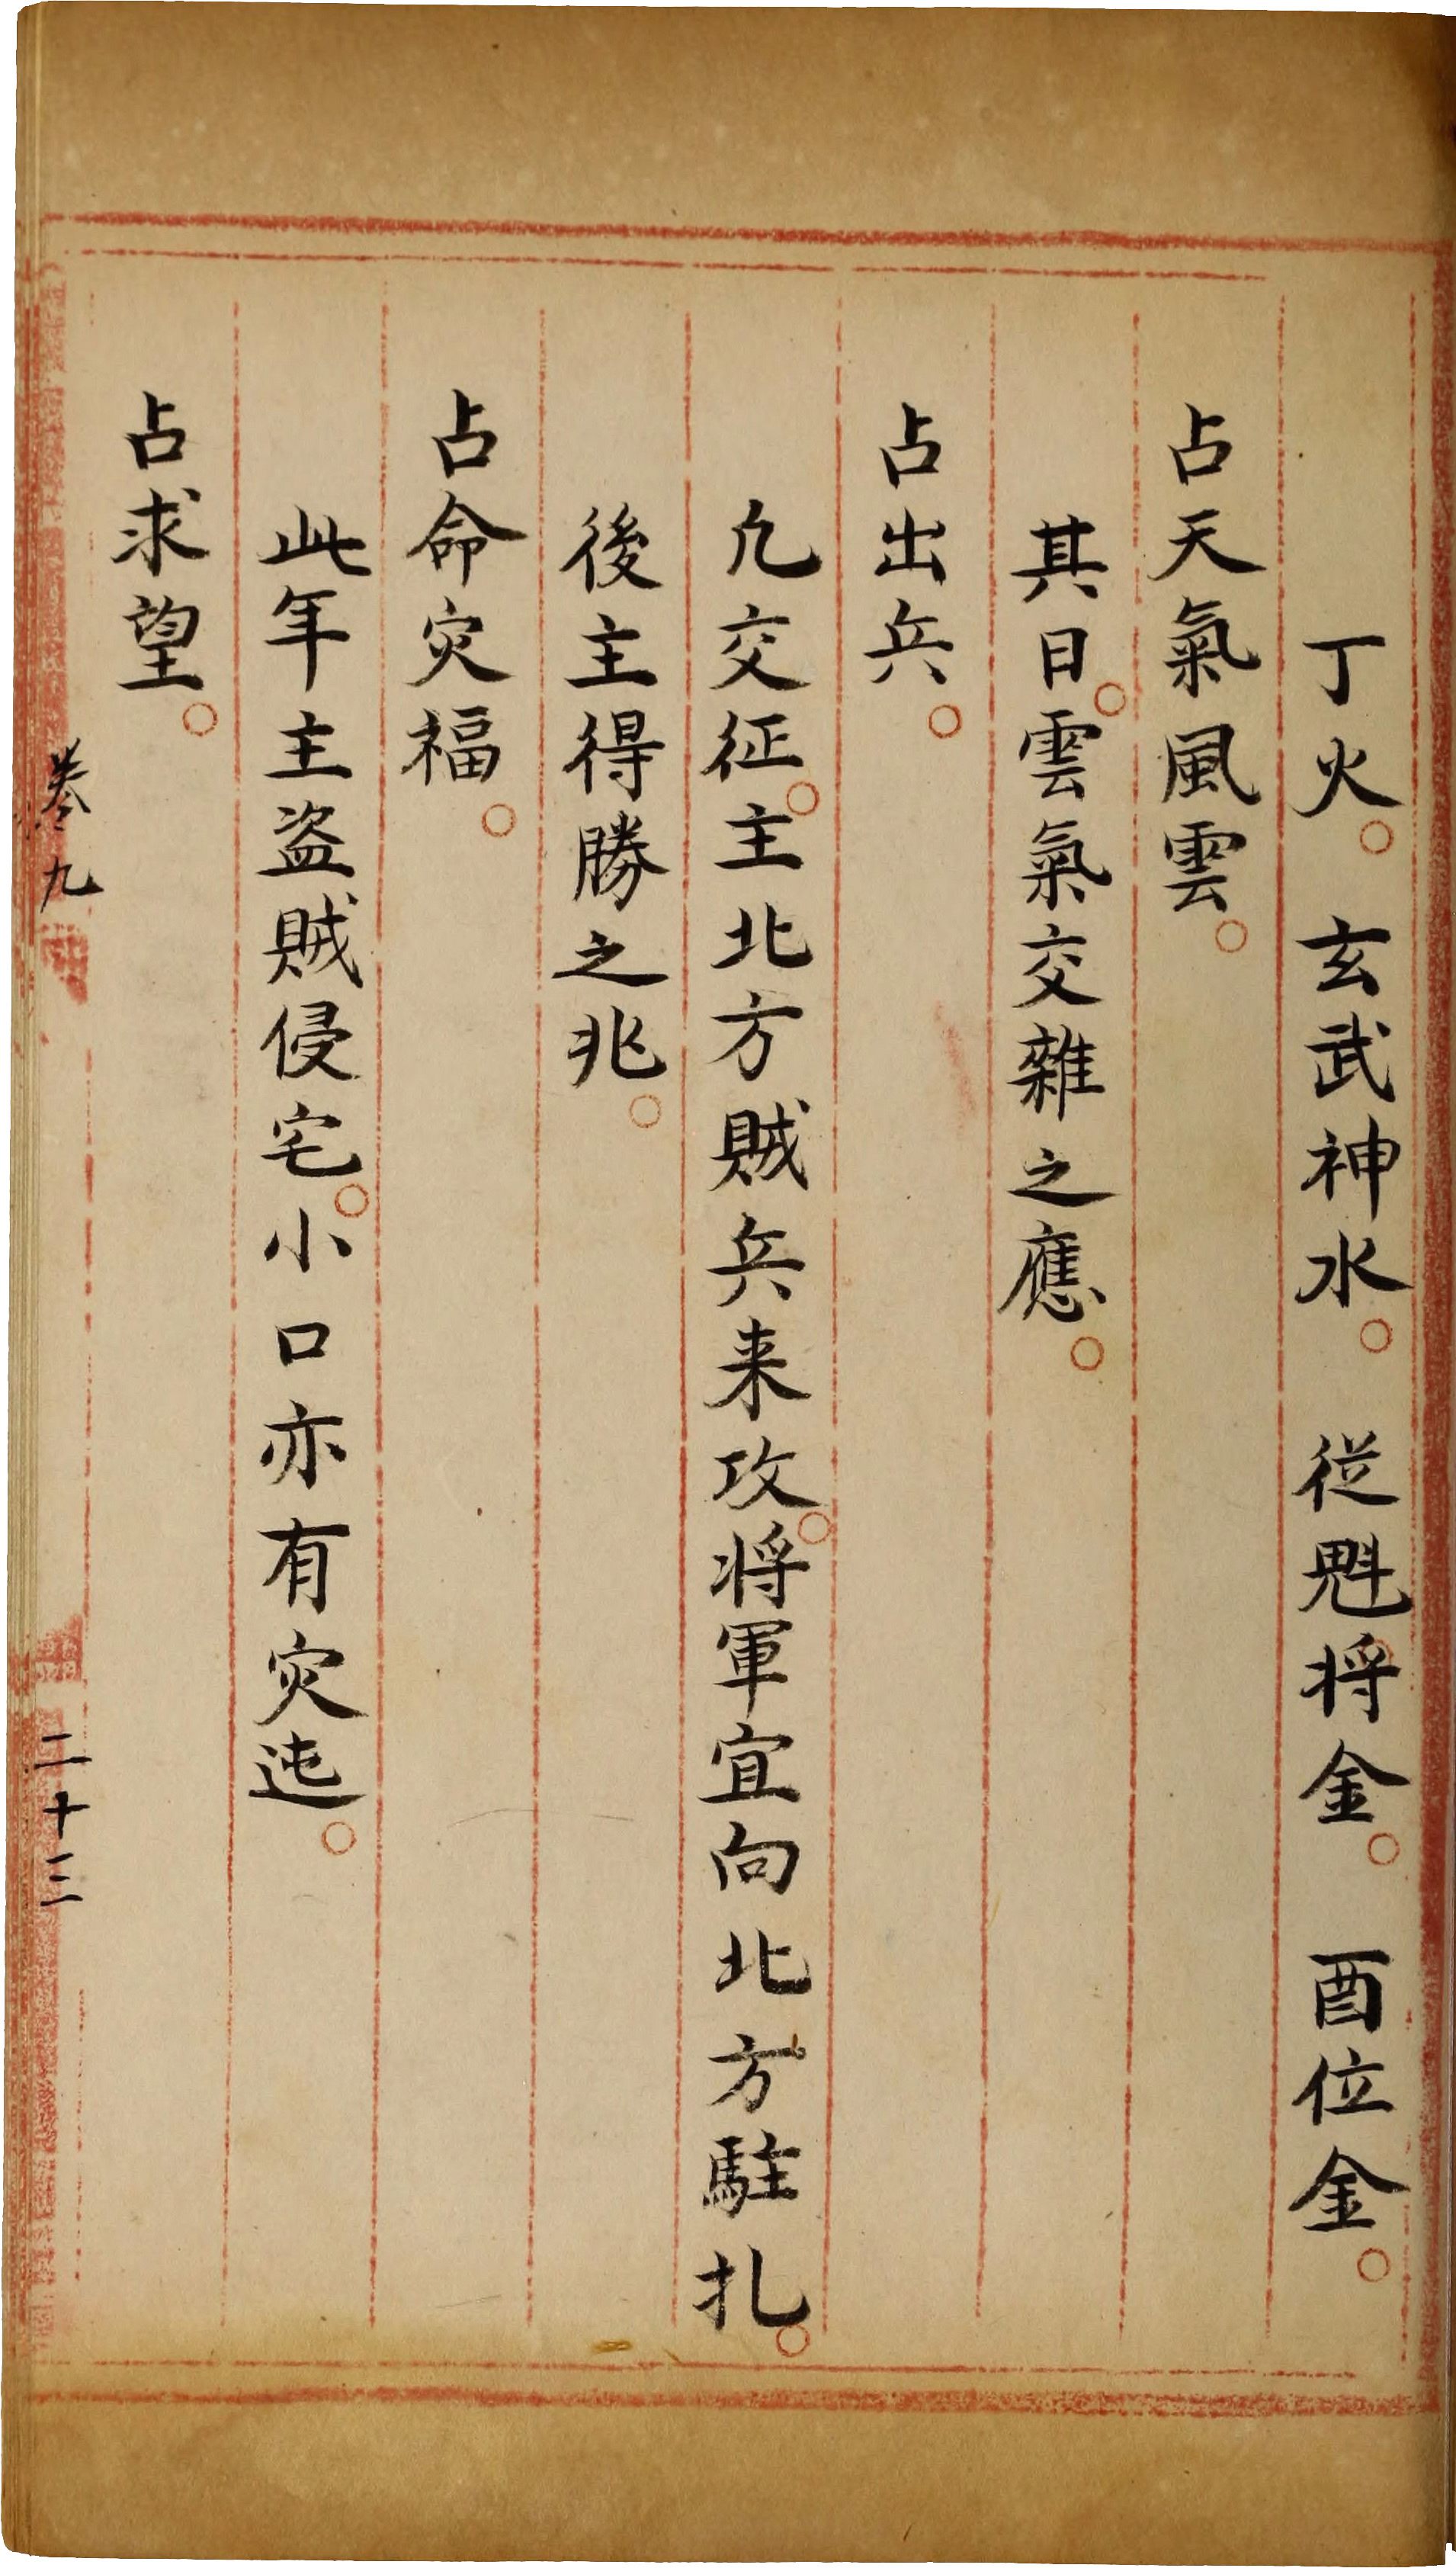 丁火。玄武神水。從魁将金。酉位金。
占天氣風雲。
其日。雲氣交雜之應。
占出兵。
凢交征。主北方賊兵来攻。将軍宜向北方駐扎。
後主得勝之兆。
占命灾福。
此年主盗賊侵宅。小口亦有灾迍。
占求望。
卷九
二十三